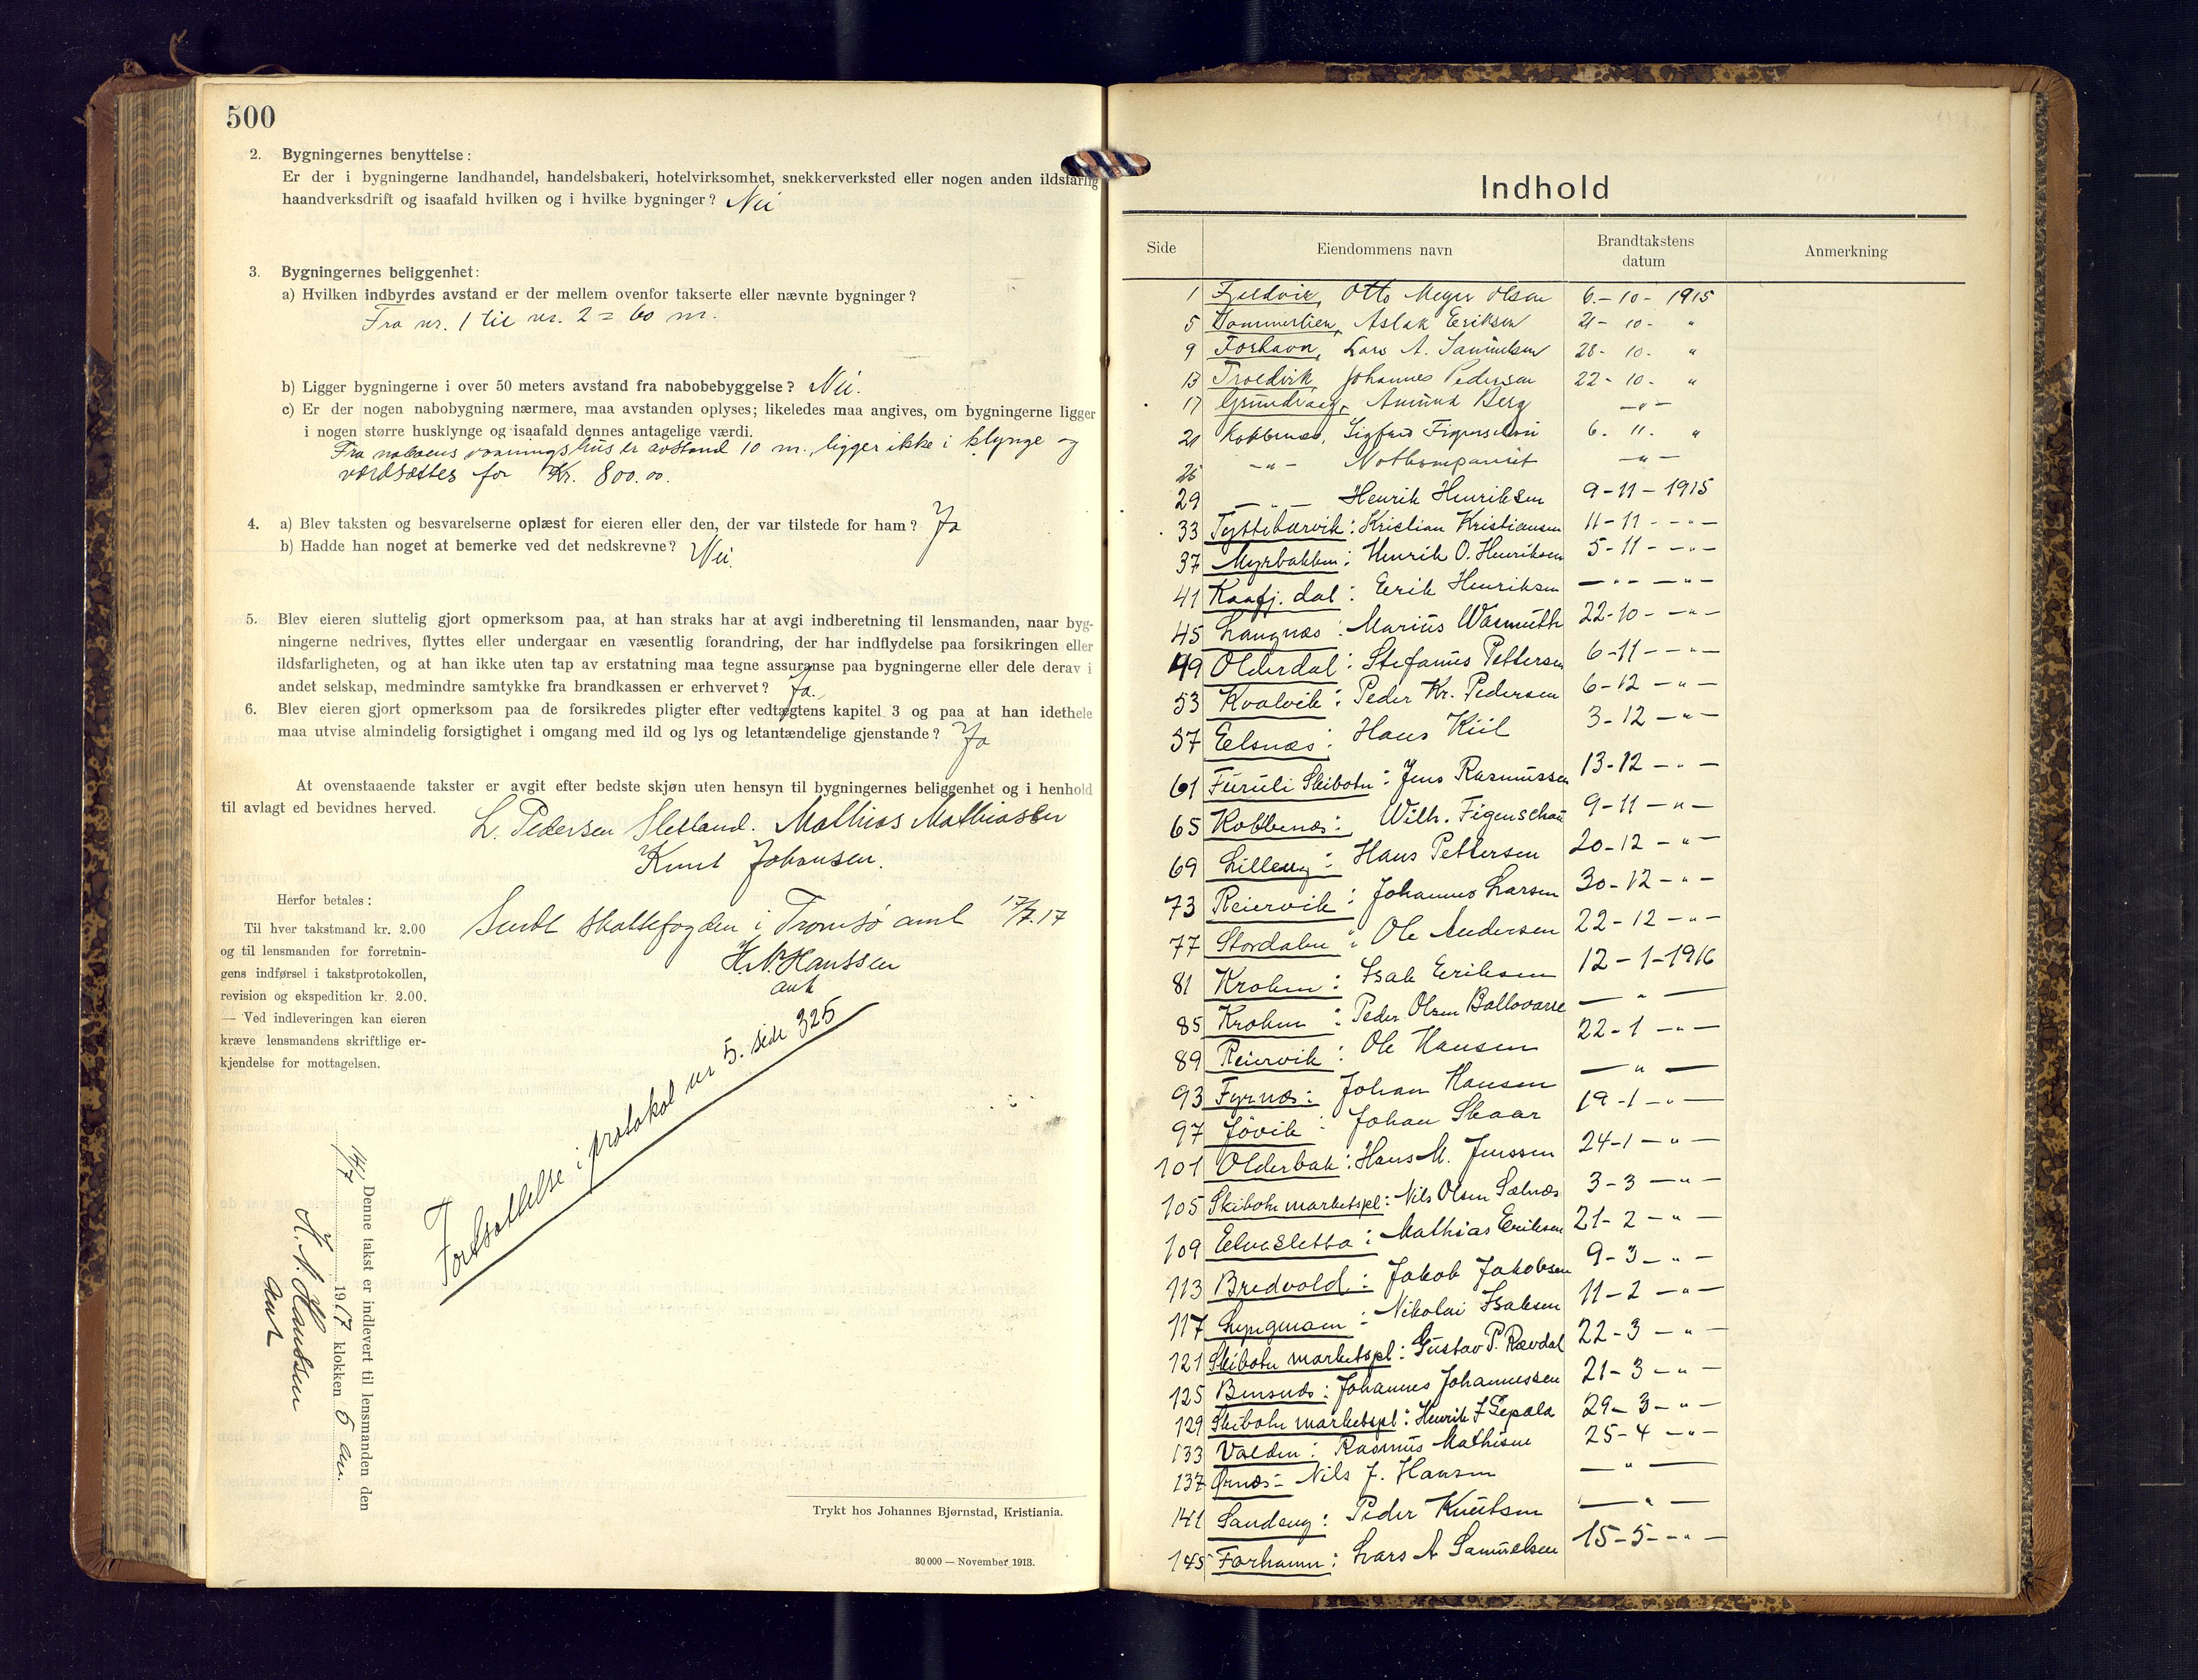 500
2. Bygningernes benyttelse:
Er der i bygningerne landhandel, handelsbakeri, hotelvirksomhet, snekkerverksted eller nogen anden ildsfarlig
haandverksdrift og isaafald hvilken og i hvilke bygninger? Nei
3. Bygningernes beliggenhet:
a) Hvilken indbyrdes avstand er der mellem ovenfor takserte eller nævnte bygninger?
Fra nr. 1 til nr. 2 = 60 m.
b) Ligger bygningerne i over 50 meters avstand fra nabobebyggelse? Nei.
c) Er der nogen nabobygning nærmere, maa avstanden oplyses; likeledes maa angives, om bygningerne ligger
i nogen større husklynge og isaafald dennes antagelige værdi.
Fra naboens vaaningshus er avstand 10 m. ligger ikke i klynge og
værdsættes for Kr. 800.00.
4. a) Blev taksten og besvarelserne oplæst for eieren eller den, der var tilstede for ham? Ja
b) Hadde han noget at bemerke ved det nedskrevne? Nei.
5. Blev eieren sluttelig gjort opmerksom paa, at han straks har at avgi indberetning til lensmanden, naar byg-
ningerne nedrives, flyttes eller undergaar en væsentlig forandring, der har indflydelse paa forsikringen eller
ildsfarligheten, og at han ikke uten tap av erstatning maa tegne assuranse paa bygningerne eller dele derav i
andet selskap, medmindre samtykke fra brandkassen er erhvervet? Ja.
6. Blev eieren gjort opmerksom paa de forsikredes pligter efter vedtægtens kapitel 3 og paa at han idethele
maa utvise almindelig forsigtighet i omgang med ild og lys og letantændelige gjenstande? Ja
At ovenstaaende takster er avgit efter bedste skjøn uten hensyn til bygningernes beliggenhet og i henhold
til avlagt ed bevidnes herved.
L. Pedersen Sletland. Mathias Mathiassen
Knut Johansen.
Herfor betales:
Til hver takstmand kr. 2.00
og til lensmanden for forretnin-
gens indførsel i takstprotokollen,
revision og ekspedition kr. 2.00.
— Ved indleveringen kan eieren
kræve lensmandens skriftlige er-
kjendelse for mottagelsen.
Sendt skattefogden i Tromsø amt 17/7.17
H. N. Hanssen
aut
Fortsættelse i protokol nr 5. side 325
Denne takst er indlevert til lensmanden den
14/7 1917 klokken 5 em.
H. N. Hanssen
aut
Trykt hos Johannes Bjørnstad, Kristiania.
30 000 — November 1913.
Indhold
Side Eiendommens navn Brandtakstens datum Anmerkning
1 Fjeldvik, Otto Meyer Olsen 6.-10- 1915
5 Aslak Eriksen 21- 10- "
9 Forhavn, Lars A. Samuelsen 28- 10. "
13 Troldvik, Johannes Pedersen 22- 10- "
17 Grundvaag, Amund Berg —"—
21 Kobbenæs, Sigfred Figenschau 6. 11. "
25 —"— Notkompaniet —"—
29 —"— Henrik Henriksen 9-11-1915
33 Tyttebærvik: Kristian Kristiansen 11-11 - —"—
37 Myrbakken: Henrik O. Henriksen 5-11 - —"—
41 Kaafj. dal: Eerik Henriksen —"— —"—
45 Langnæs: Marius Wasmuth 22-10- —"—
49 Olderdal: Stefanus Pettersen 6-11- —"—
53 Kvalvik: Peder Kr. Pedersen 6-12 —"—
57 Eelsnæs: Hans Kiil 3-12 —"—
61 Furuli Skibotn: Jens Rasmussen 13-12 —"—
65 Kobbenæs: Wilh. Figenschau 9-11 —"—
69 Lilleeng: Hans Pettersen 20-12 —"—
73 Reiervik: Johannes Larsen 30-12 —"—
77 Stordalen: Ole Andersen 22-12 —"—
81 Kroken: Isak Eriksen 12-1-1916
85 Kroken: Peder Olsen Ballovarre —"—
89 Reiervik: Ole Hansen 22-1 —"—
93 Fyrnæs: Johan Hansen —"—
97 Jøvik: Johan Skaar 19-1 —"—
101 Olderbak: Hans M. Jenssen 24-1 —"—
105 Skibotn markedspl: Nils Olsen Salnæs 3-3 —"—
109 Elvesletta: Mathias Eriksen 21-2 —"—
113 Bredvold: Jakob Jakobsen 9-3 —"—
117 Lyngmoen: Nikolai Isaksen 11-2 —"—
121 Skibotn markedspl: Gustav P. Rævdal 22-3 —"—
125 Bensnæs: Johannes Johannessen 21-3 —"—
129 Skibotn markedspl: Henrik J Sepala 29-3 —"—
133 Valden: Rasmus Mathisen 25-4 —"—
137 Ørnæs: Nils J. Hansen —"—
141 Sandeng: Peder Knutsen —"—
145 Forhamn: Lars A Samuelsen 15-5 —"—